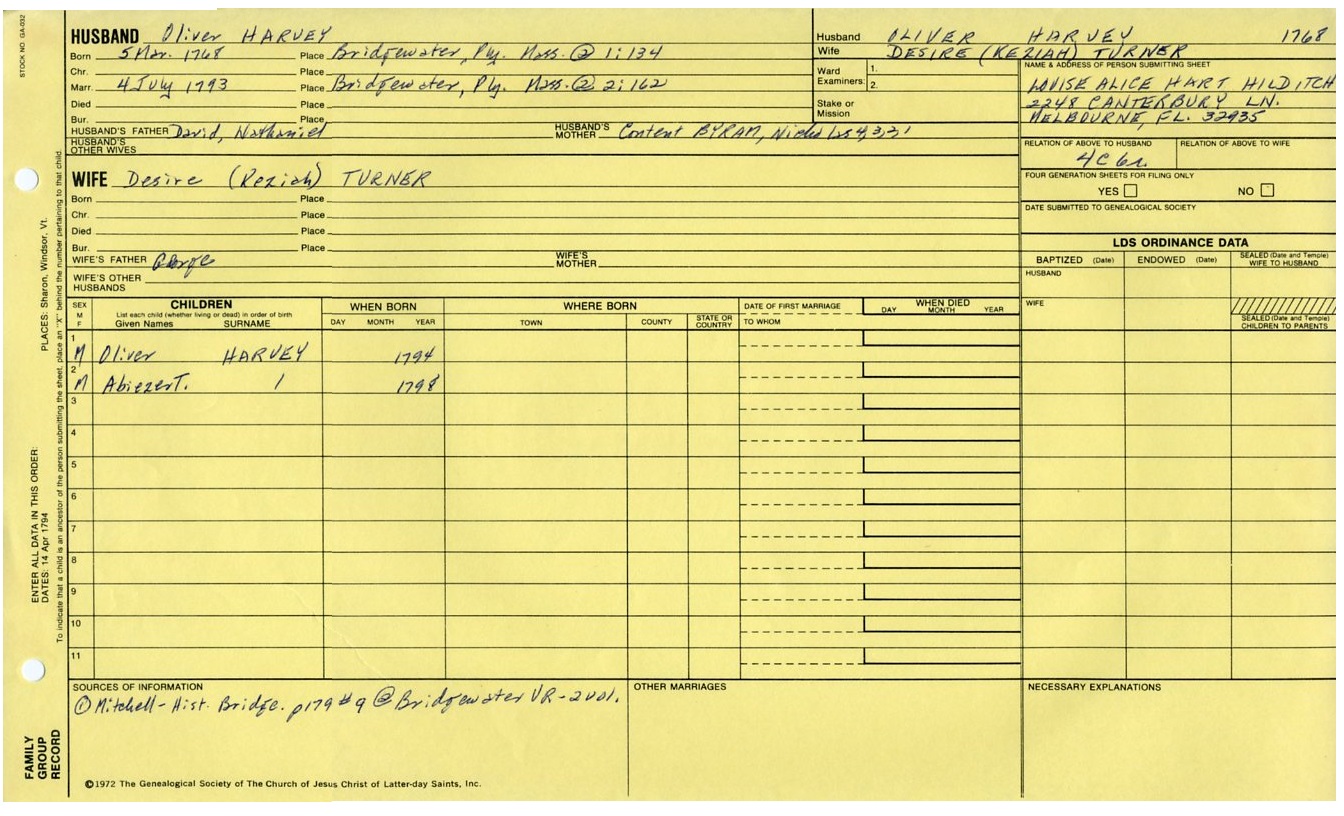 STOCK NO. GA-032
HUSBAND Oliver HARVEY
Born 5 Mar. 1768 Place Bridgewater, Ply. Mass. ② 1:134
Chr. Place
Marr. 4 July 1793 Place Bridgewater, Ply. Mass. ② 2:162
Died Place
Bur. Place
HUSBAND'S FATHER David, Nathaniel HUSBAND'S MOTHER Content BYRAM, Nicholas 4,3,2,1
HUSBAND'S OTHER WIVES
WIFE Desire (Keziah) TURNER
Born Place
Chr. Place
Died Place
Bur. Place
WIFE'S FATHER George WIFE'S MOTHER
WIFE'S OTHER HUSBANDS
Husband OLIVER HARVEY 1768
Wife DESIRE (KEZIAH) TURNER
Ward Examiners: 1.
2.
Stake or Mission
NAME & ADDRESS OF PERSON SUBMITTING SHEET
LOUISE ALICE HART HILDITCH
2248 CANTERBURY LN.
MELBOURNE, FL. 32935
RELATION OF ABOVE TO HUSBAND RELATION OF ABOVE TO WIFE
4C6r.
FOUR GENERATION SHEETS FOR FILING ONLY
YES NO
DATE SUBMITTED TO GENEALOGICAL SOCIETY
LDS ORDINANCE DATA
BAPTIZED (Date) ENDOWED (Date) SEALED (Date and Temple) WIFE TO HUSBAND
HUSBAND
WIFE
SEALED (Date and Temple) CHILDREN TO PARENTS
SEX M F
CHILDREN
List each child (whether living or dead) in order of birth
Given Names SURNAME
WHEN BORN
DAY MONTH YEAR
WHERE BORN
TOWN COUNTY STATE OR COUNTRY
DATE OF FIRST MARRIAGE
TO WHOM
WHEN DIED
DAY MONTH YEAR
1 M Oliver HARVEY 1794
2 M Abiezer T. / 1798
3
4
5
6
7
8
9
10
11
SOURCES OF INFORMATION
① Mitchell - Hist. Bridge. p179 #9 ② Bridgewater VR-2vol.
OTHER MARRIAGES
NECESSARY EXPLANATIONS
©1972 The Genealogical Society of The Church of Jesus Christ of Latter-day Saints, Inc.
PLACES: Sharon, Windsor, Vt.
ENTER ALL DATA IN THIS ORDER:
DATES: 14 Apr 1794
To indicate that a child is an ancestor of the person submitting the sheet, place an "X" behind the number pertaining to that child.
FAMILY
GROUP
RECORD